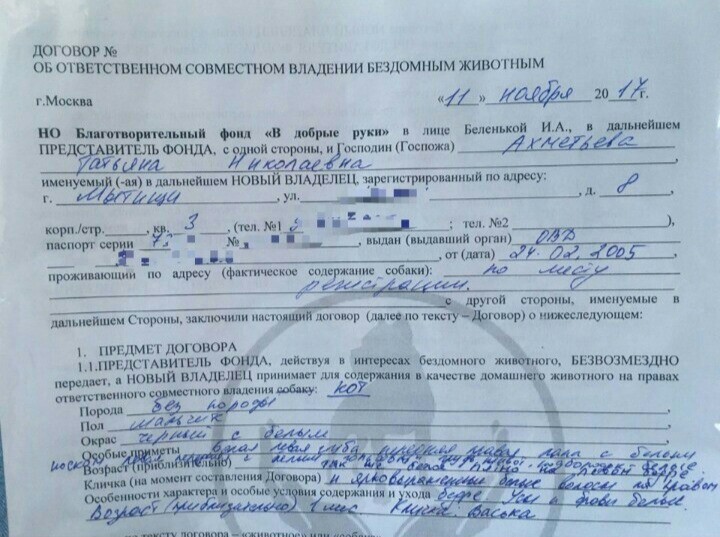 ДОГОВОР №
ОБ ОТВЕТСТВЕННОМ СОВМЕСТНОМ ВЛАДЕНИИ БЕЗДОМНЫМ ЖИВОТНЫМ
г.Москва «11» ноября 2017г.
НО Благотворительный фонд «В добрые руки» в лице Беленькой И.А., в дальнейшем
ПРЕДСТАВИТЕЛЬ ФОНДА, с одной стороны, и Господин (Госпожа) Ахметьева
Татьяна Николаевна,
именуемый (-ая) в дальнейшем НОВЫЙ ВЛАДЕЛЕЦ, зарегистрированный по адресу:
г. Мытищи, ул. , д. 8,
корп./стр. , кв. 3, (тел. №1 ; тел. №2 ),
паспорт серии № , выдан (выдавший орган) ОВД
, от (дата) 24.02.2005
проживающий по адресу (фактическое содержание собаки): по месту
регистрации.
с другой стороны, именуемые в
дальнейшем Стороны, заключили настоящий договор (далее по тексту – Договор) о нижеследующем:
1. ПРЕДМЕТ ДОГОВОРА
1.1.ПРЕДСТАВИТЕЛЬ ФОНДА, действуя в интересах бездомного животного, БЕЗВОЗМЕЗДНО
передает, а НОВЫЙ ВЛАДЕЛЕЦ принимает для содержания в качестве домашнего животного на правах
ответственного совместного владения собаку: кот
Порода без породы
Пол мальчик
Окрас черный с белым
Особые приметы лапа с белым
Возраст (приблизительно)
Кличка (на момент составления Договора) и ярковыраженные белые волосы на правом
Особенности характера и особые условия содержания и ухода бедре. Усы и брови белые.
Возраст (приблизительно) 1 мес Кличка: Васька
по тексту договора – «животное» или «собаку»